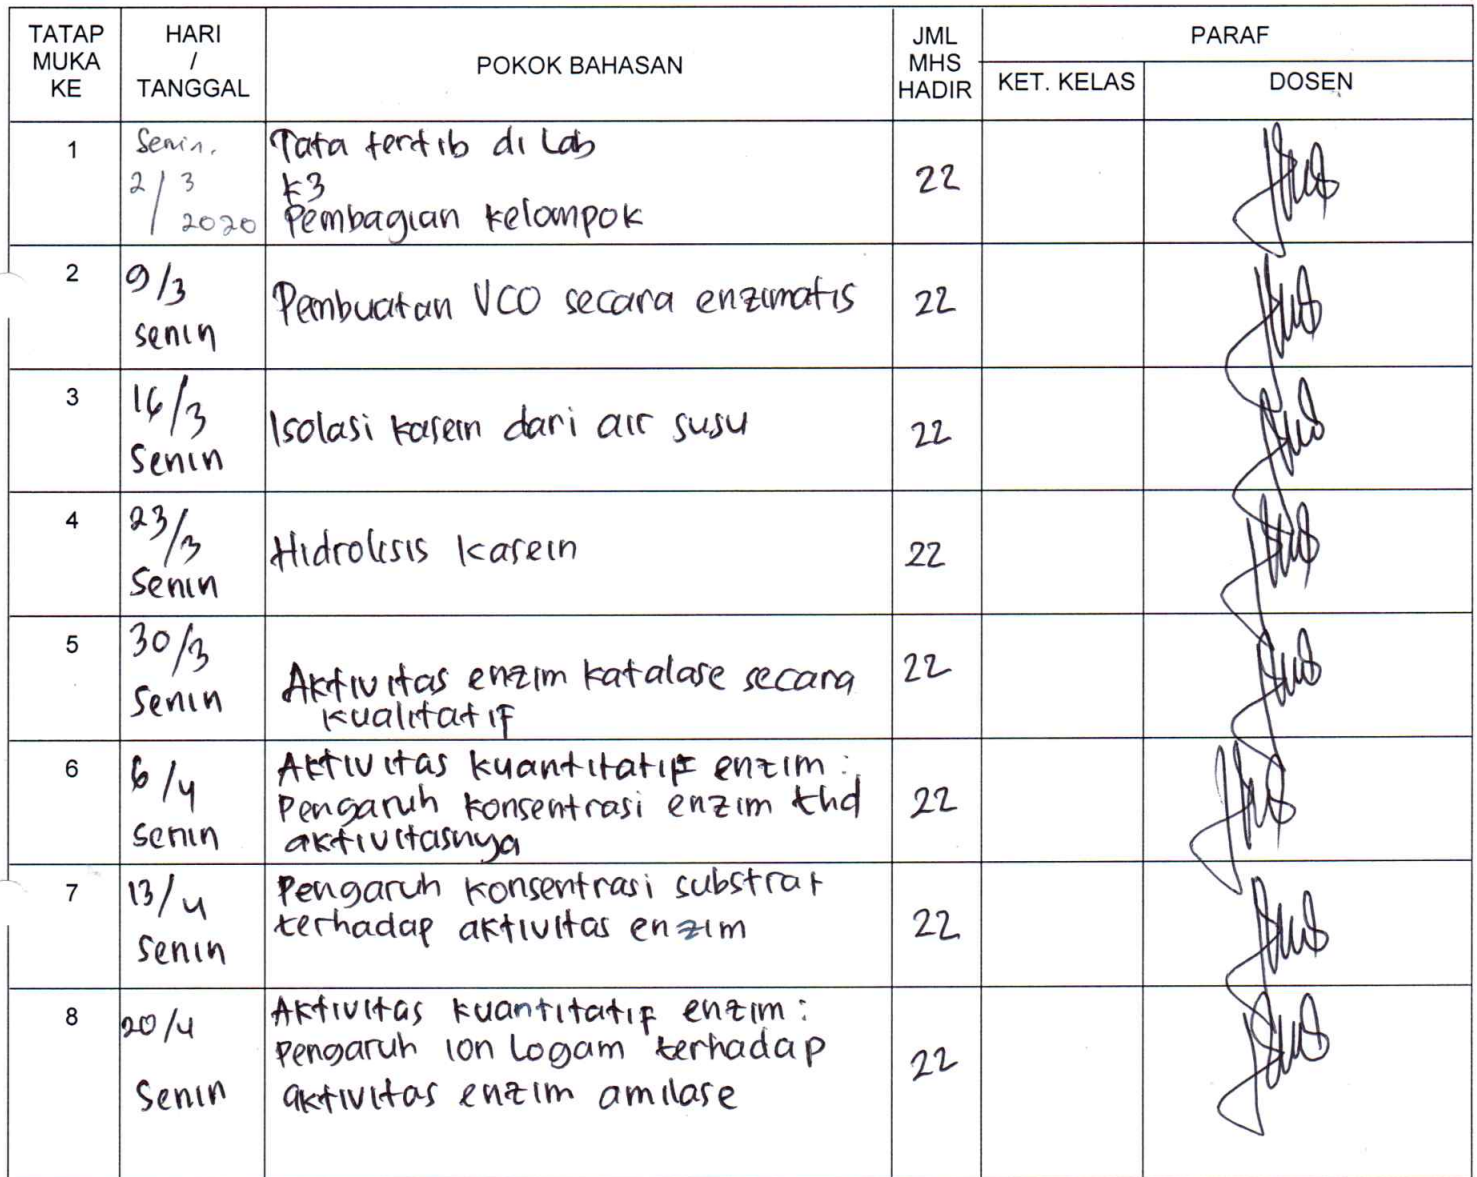 TATAP MUKA KE
HARI / TANGGAL
POKOK BAHASAN
JML MHS HADIR
PARAF
KET. KELAS
DOSEN
1
Senin,
2/3
2020
Tata tertib di Lab
K3
Pembagian kelompok
22
2
9/3
senin
Pembuatan VCO secara enzimatis
22
3
16/3
Senin
Isolasi kasein dari air susu
22
4
23/3
Senin
Hidrolisis kasein
22
5
30/3
Senin
Aktivitas enzim katalase secara
kualitatif
22
6
6/4
senin
Aktivitas kuantitatif enzim :
Pengaruh konsentrasi enzim thd
aktivitasnya
22
7
13/4
Senin
Pengaruh konsentrasi substrat
terhadap aktivitas enzim
22
8
20/4
Senin
Aktivitas kuantitatif enzim :
Pengaruh ion Logam terhadap
aktivitas enzim amilase
22